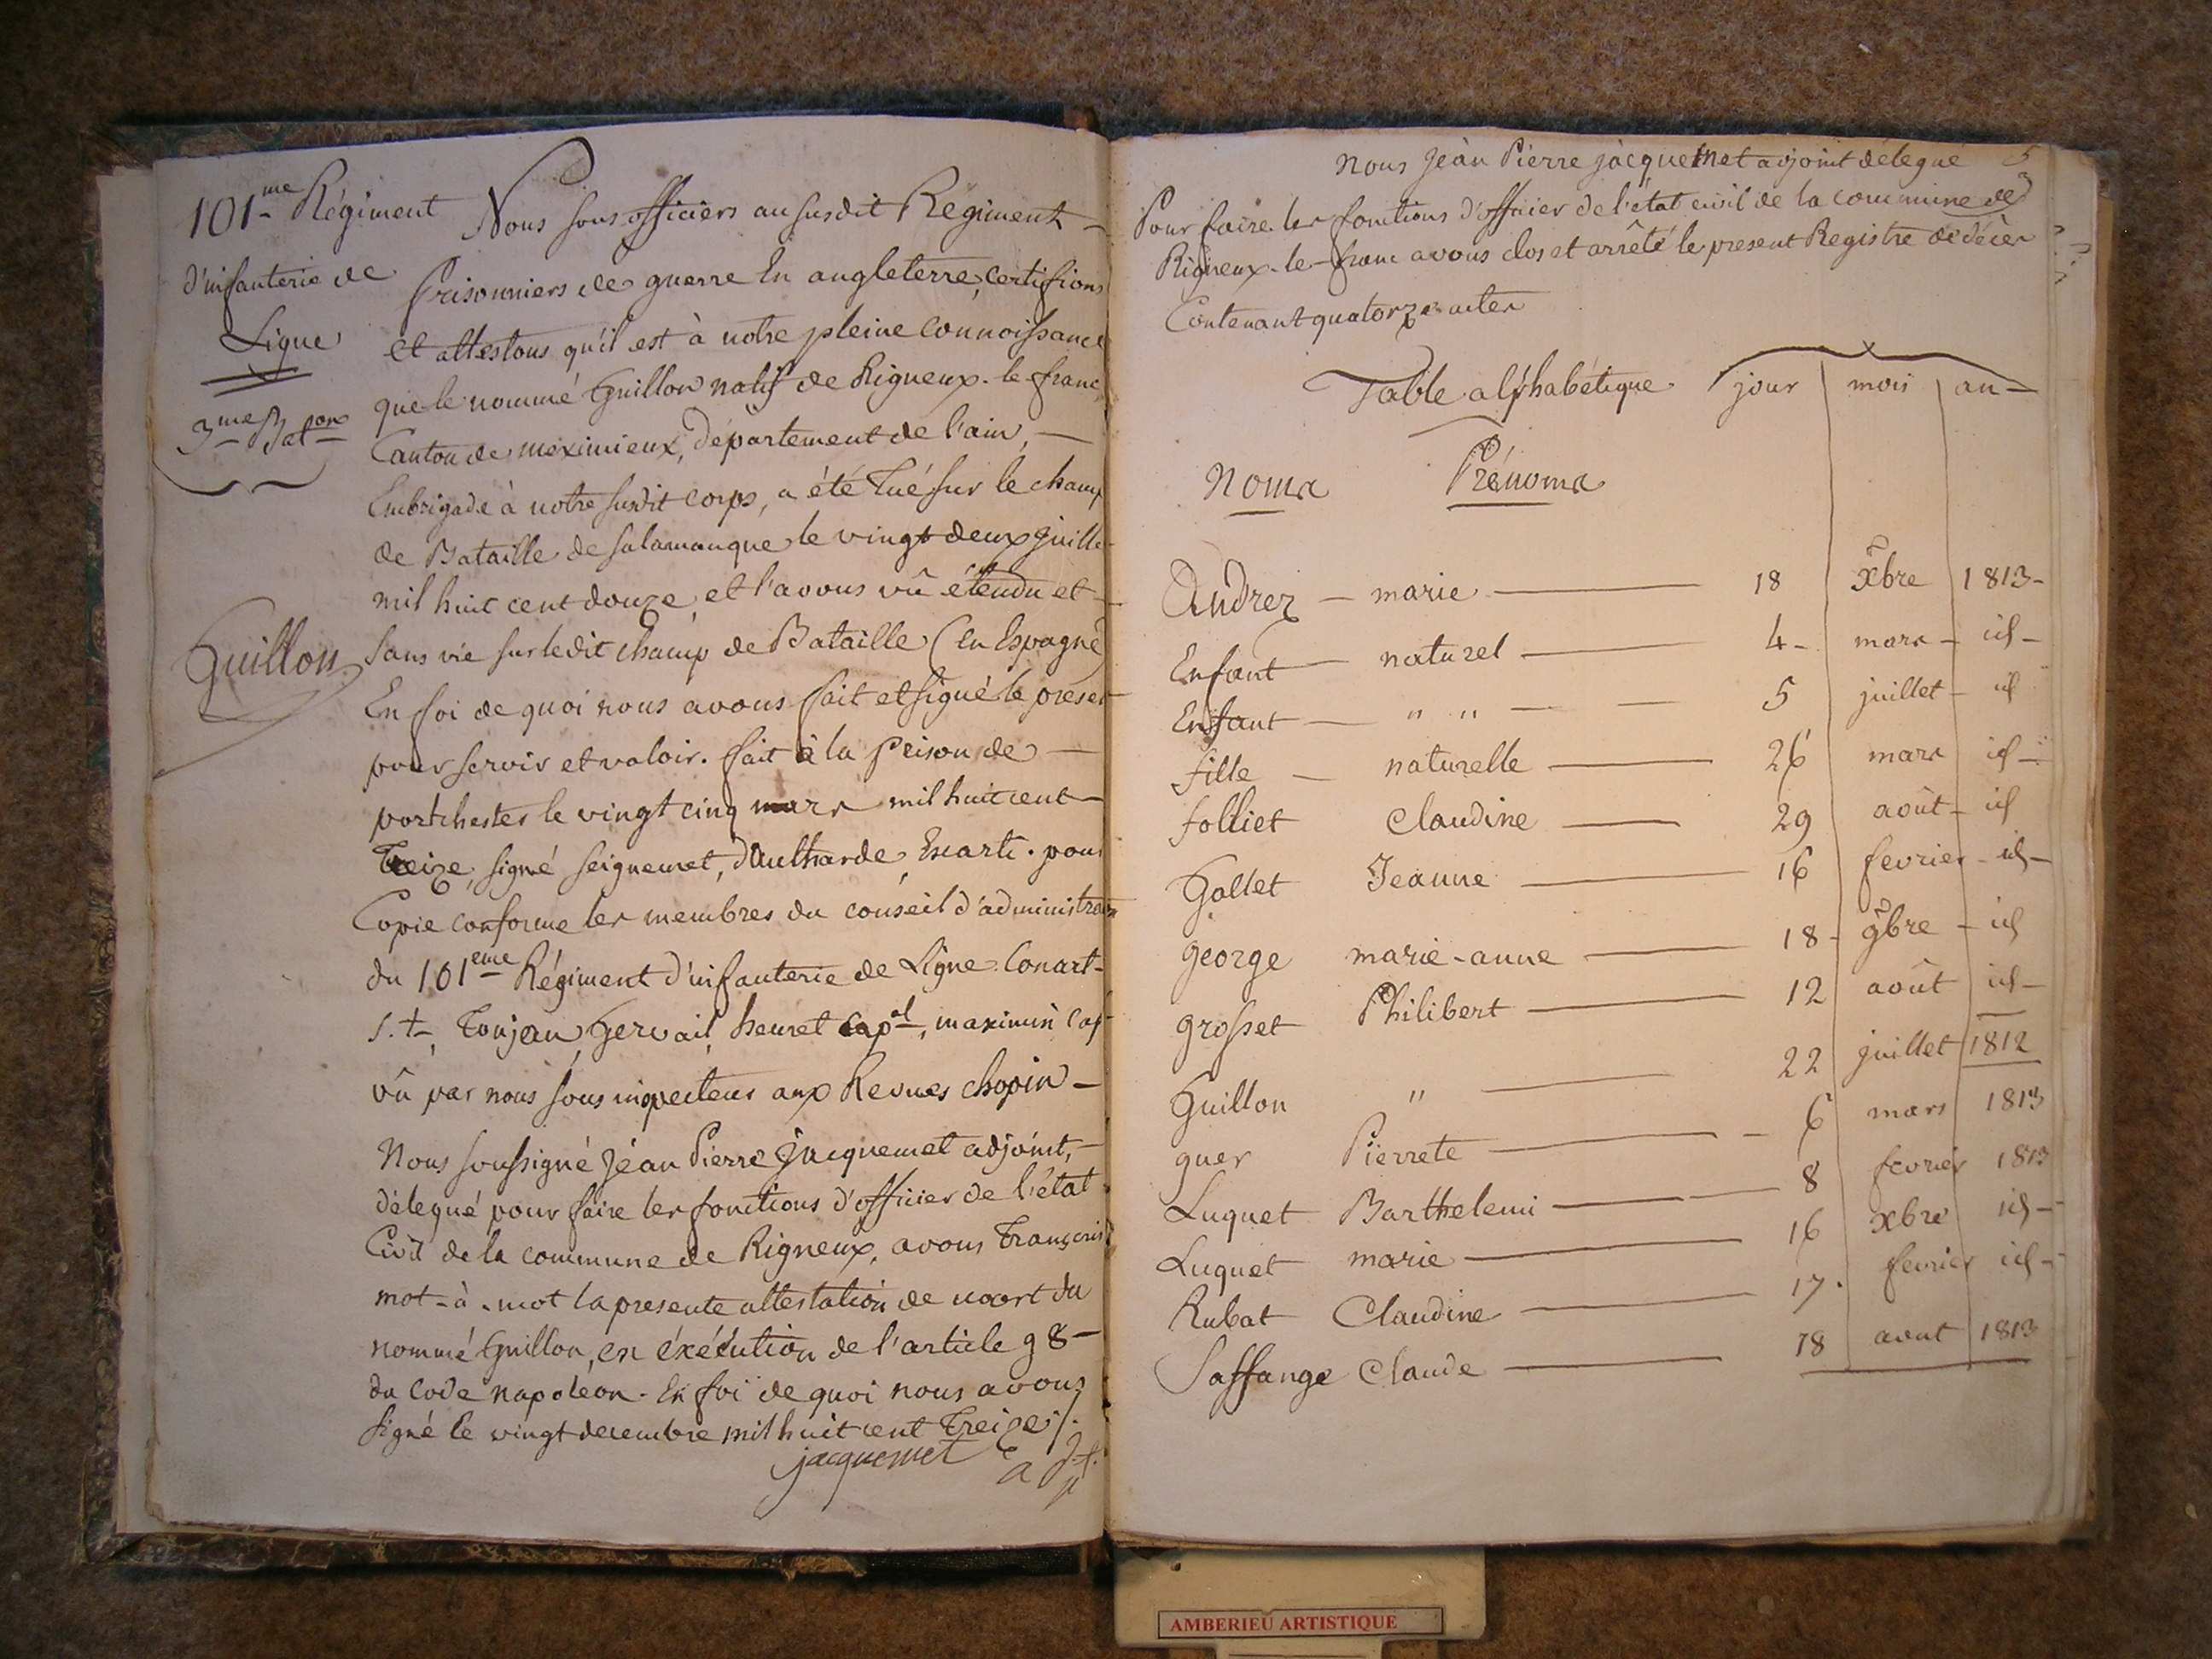 101me Régiment
d'infanterie de
Ligne
3me Baton
Guillon
Nous sous officiers au susdit Régiment
Prisonniers de guerre En angleterre, certifions
et attestons qu'il est à notre pleine connoissance
que le nommé Guillon natif de Rigneux-le-franc
Canton de meximieux, Département de l'ain,
Embrigadé à notre susdit corps, a été Tué sur le champ
de Bataille de salamanque le vingt deux juille
mil huit cent douze et l'avons vû étendu et
sans vie sur ledit champ de Bataille (en Espagne)
En foi de quoi nous avons fait et signé le present
pour servir et valoir. fait à la Prison de
portchester le vingt cinq mars mil huit cent
Treize, signé seignemet, Escarti. pour
Copie conforme les membres du conseil d'administration
du 101eme Régiment d'infanterie de Ligne
Tonjean, Gervail, heuret maximin Cap
vû par nous sous inspecteur aux Revues chopin
Nous soussigné jéan Pierre jacquemet adjoint,
délegué pour faire les fonctions d'officier de l'état
Civil de la commune de Rigneux, avons Transcris
mot-à-mot la presente attestation de mort du
nommé Guillon, en éxécution de l'article 98
du Code napoléon. En foi de quoi nous avons
signé le vingt decembre mil huit cent Treize
jacquemet adjt
5
nous Jéan Pierre jacquemet adjoint délegué
Pour faire les fonctions d'officier de l'état civil de la commune de
Rigneux-le-franc avons clos et arrêté le present Registre de décès
Contenant quatorze actes
Table alphabétique jour mois an
Noms Prénoms
Andrez marie 18 Xbre 1813
Enfant naturel 4 mars id
Enfant " " 5 juillet id
fille naturelle 26 mars id
folliet Claudine 29 août id
Gallet Jeanne 16 fevrier id
george marie-anne 18 9bre id
grosset Philibert 12 août id
Guillon " 22 juillet 1812
guer Pierrete 6 mars 1813
Luquet Barthelemi 8 fevrier 1813
Luquet marie 16 xbre id
Rubat Claudine 17 fevrier id
Saffange Claude 18 aout 1813
AMBERIEU ARTISTIQUE